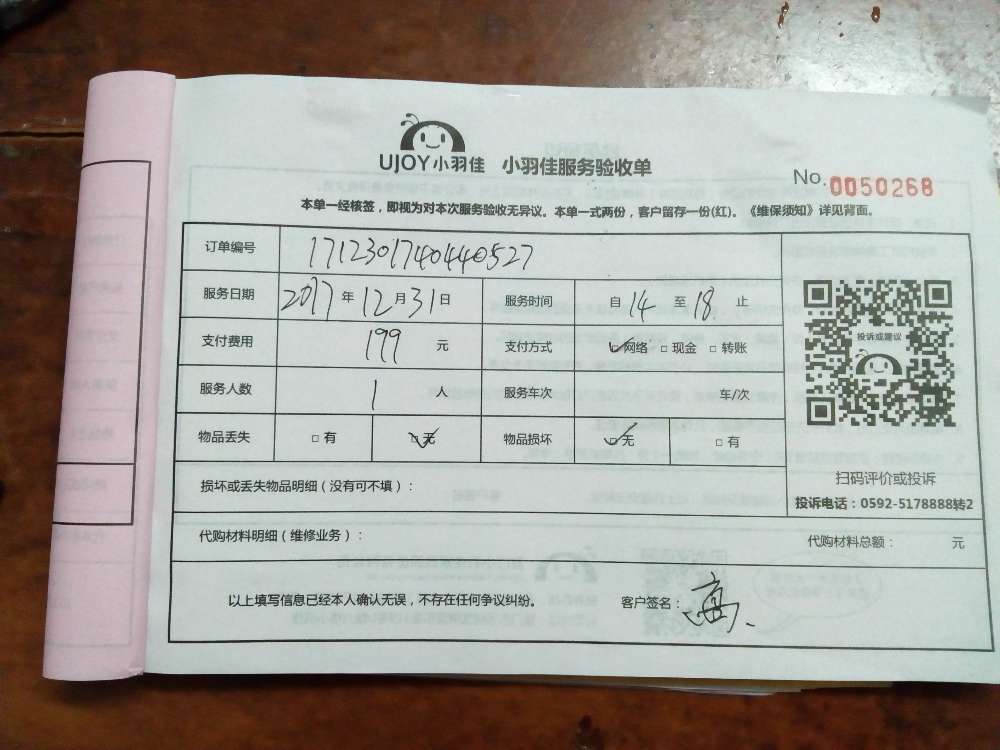 UJOY小羽佳 小羽佳服务验收单
No.0050268
本单一经核签，即视为对本次服务验收无异议。本单一式两份，客户留存一份(红)。《维保须知》详见背面。
订单编号 17123017404440527
服务日期 2017年12月31日 服务时间 自14至18止
支付费用 199元 支付方式 ☑网络 □现金 □转账
服务人数 1人 服务车次 车/次
物品丢失 □有 ☑无 物品损坏 ☑无 □有
投诉或建议
扫码评价或投诉
投诉电话：0592-5178888转2
损坏或丢失物品明细（没有可不填）：
代购材料明细（维修业务）： 代购材料总额： 元
以上填写信息已经本人确认无误，不存在任何争议纠纷。 客户签名：高